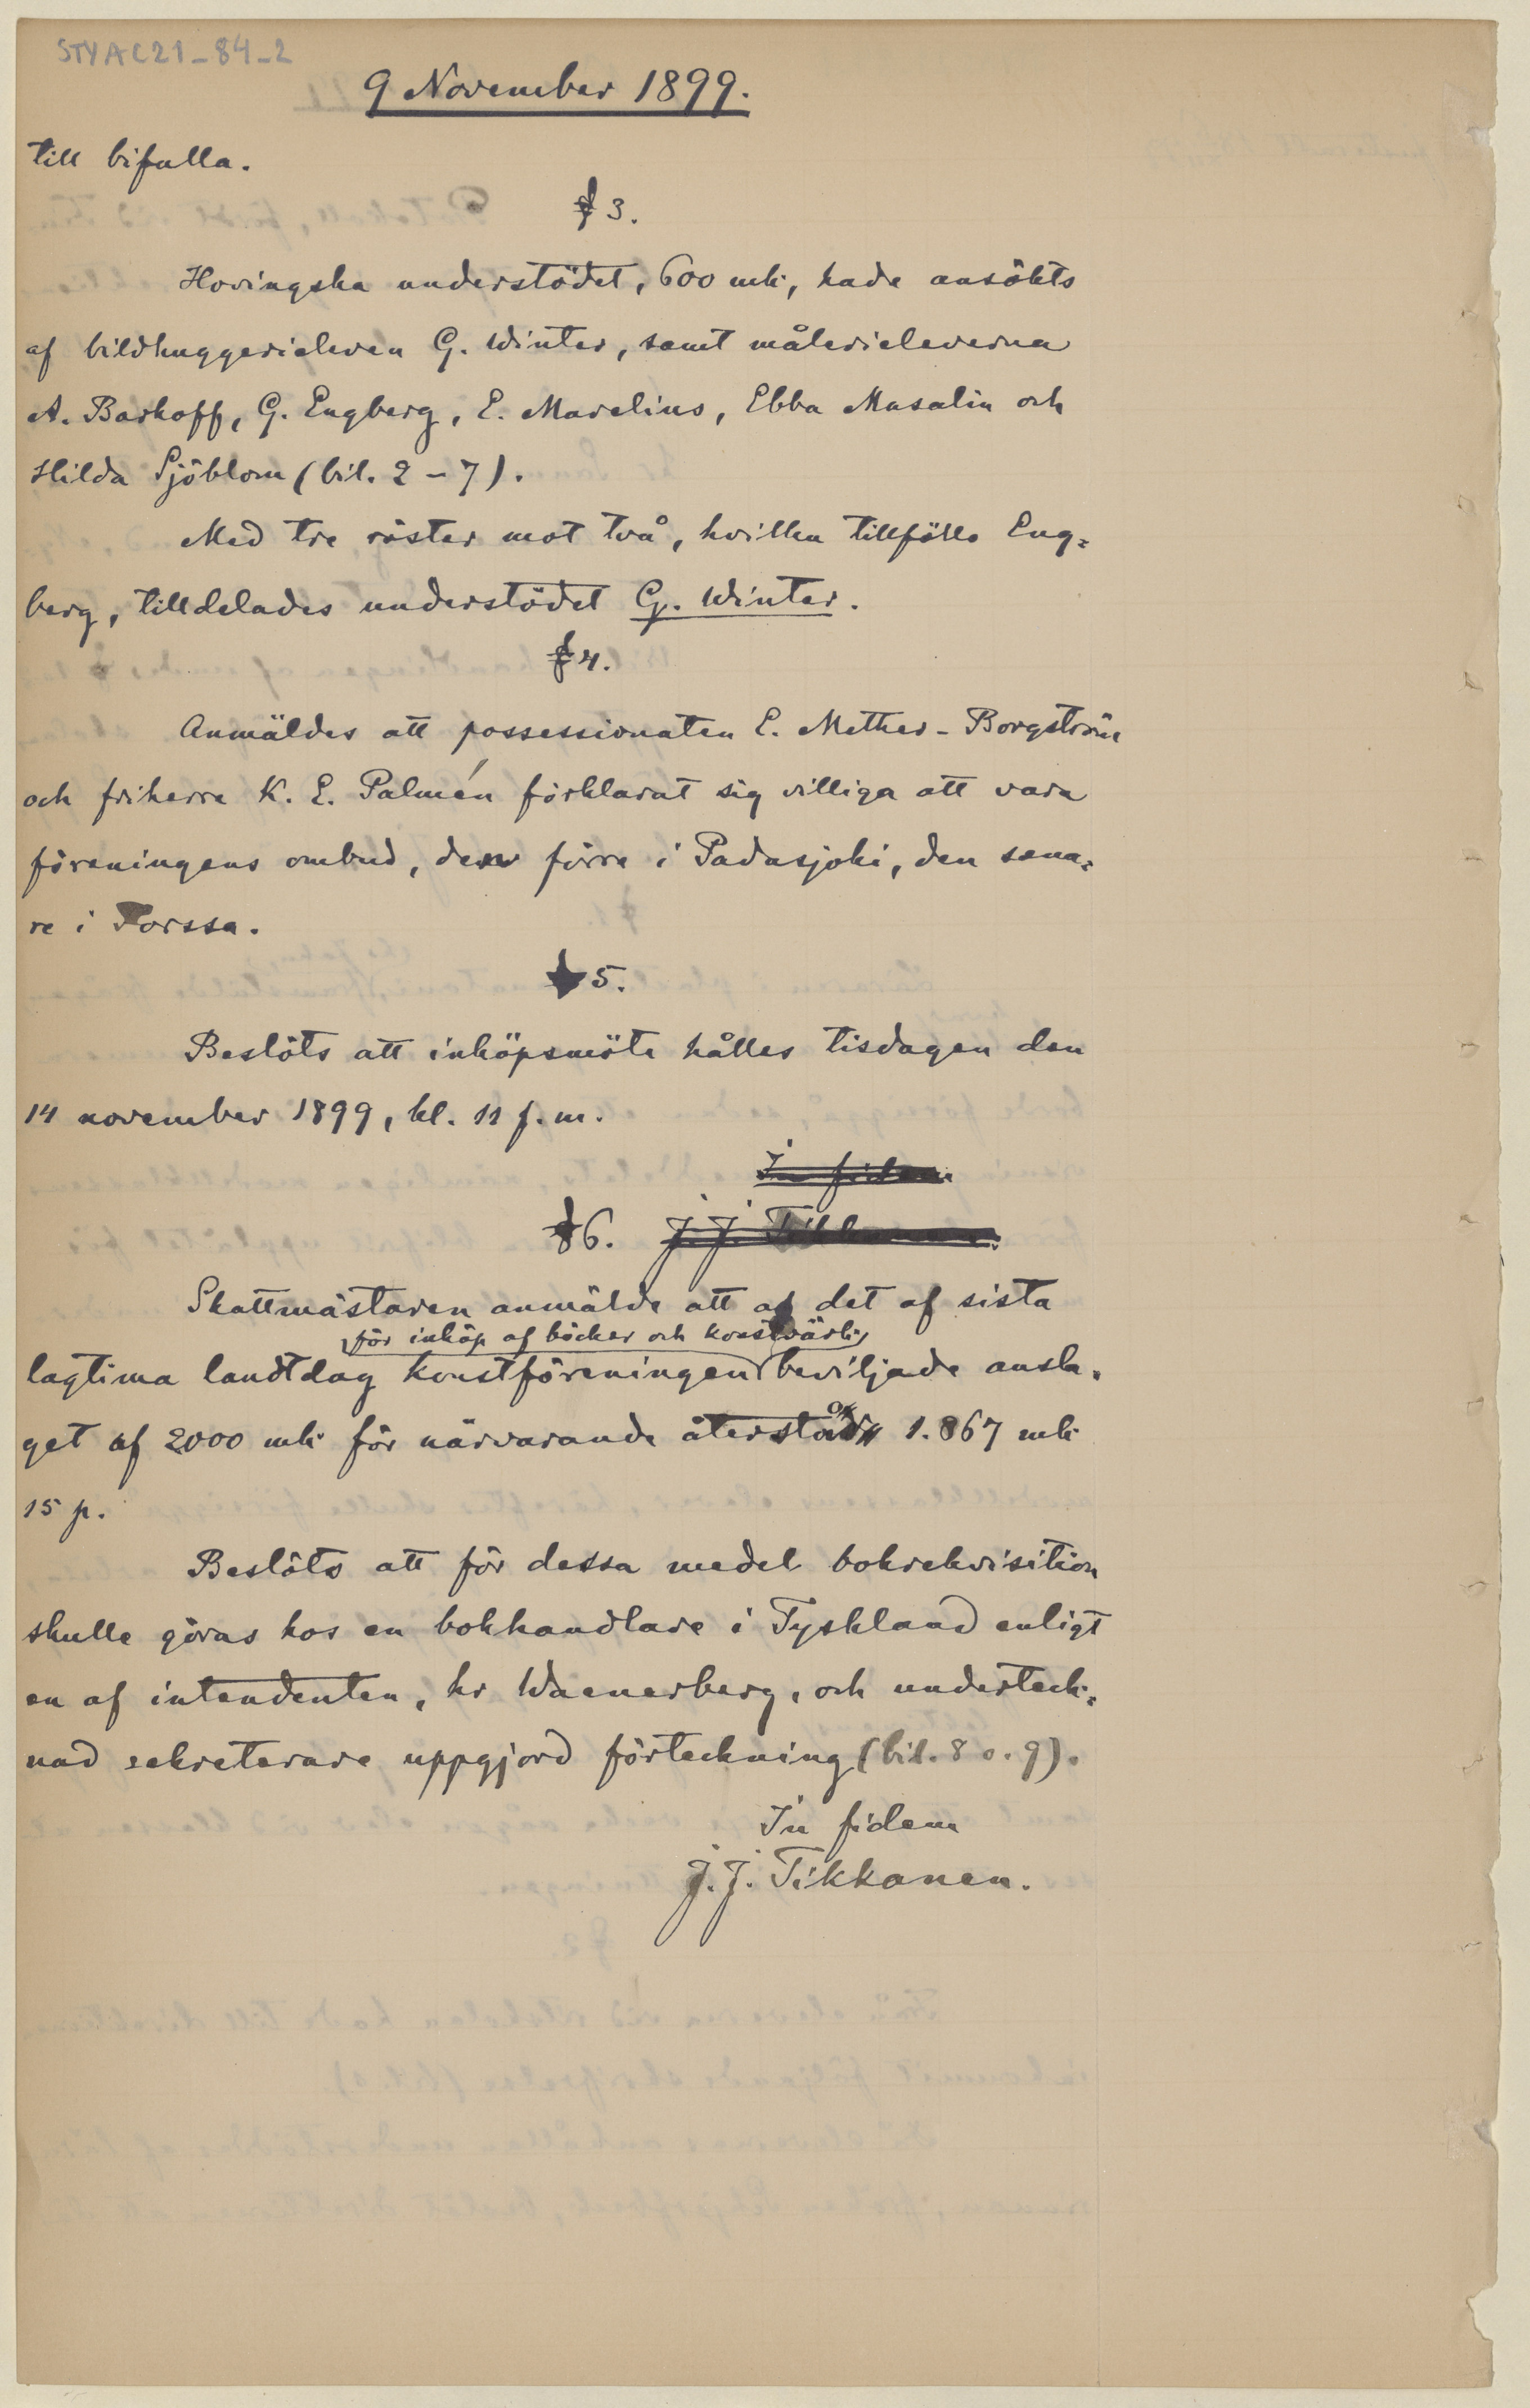 STYAC21_84_2
9 November 1899.
till bifalla.
§ 3.
Hovingska understödet, 600 mk, hade ansökts
af bildhuggerieleven G. Winter, samt målerieleverna
A. Barkoff, G. Engberg, E. Marelius, Ebba Masalin och
Hilda Sjöblom (bil. 2 – 7).
Med tre röster mot två, hvilka tillföllo Eng=
berg, tilldelades understödet G. Winter.
§ 4.
Anmäldes att possessionaten E. Mether-Borgström
och friherre K. E. Palmén förklarat sig villiga att vara
föreningens ombud, den förre i Padasjoki, den sena=
re i Forssa.
§ 5.
Beslöts att inköpsmöte hålles tisdagen den
14 november 1899, kl. 11 f. m.
In fidem
§ 6. J. J. Tikkanen.
Skattmästaren anmälde att af det af sista
för inköp af böcker och konstvärk
lagtima landtdag Konstföreningen beviljade ansla=
get af 2000 mk för närvarande återstod 1.867 mk
15 p.
Beslöts att för dessa medel bokrekvisition
skulle göras hos en bokhandlare i Tyskland enligt
en af intendenten, hr Waenerberg, och underteck=
nad sekreterare uppgjord förteckning (bil. 8 o. 9).
In fidem
J. J. Tikkanen.